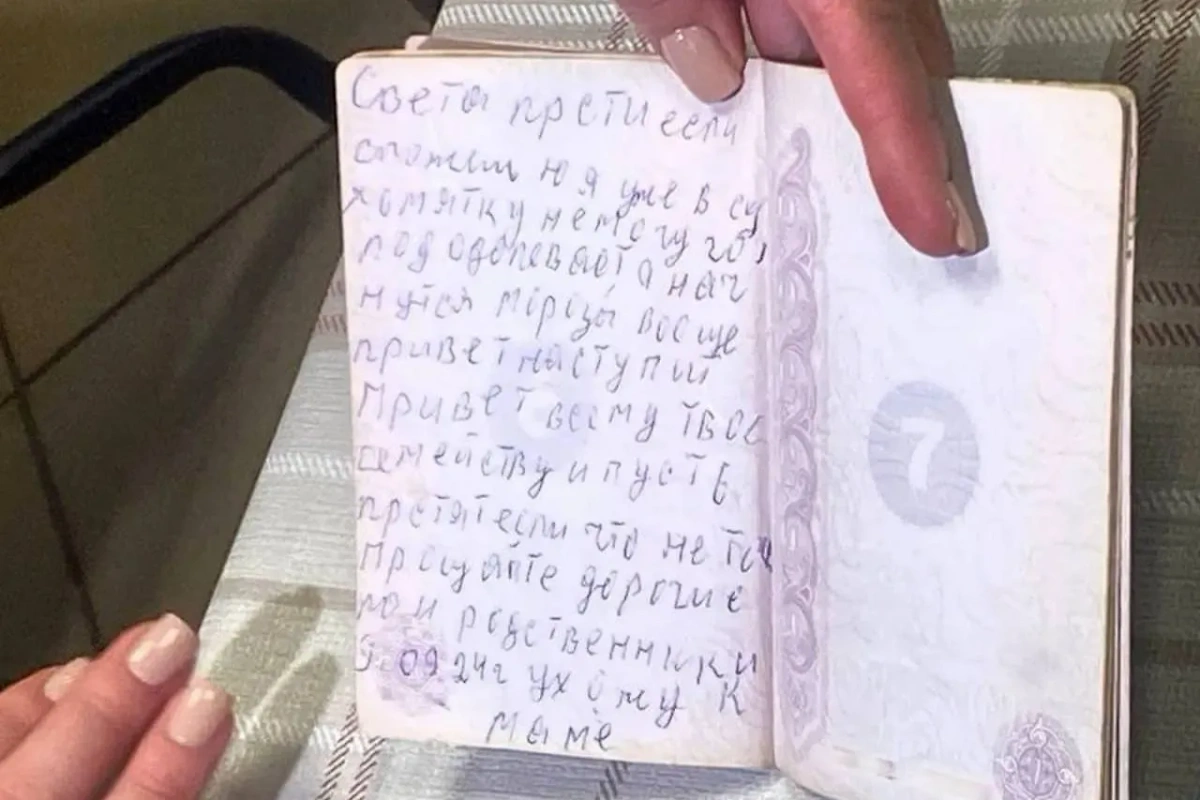 Света прсти если
сможеш Ю я уже в су
хомятку немогу го,
лод одолевает, а нач
нутся морозы вооще
привет наступит
Привет всему твое
семейству и пусть
прстят если что не так
Прощайте дорогие
мои родственники
9.09.24г ухожу к
маме
7